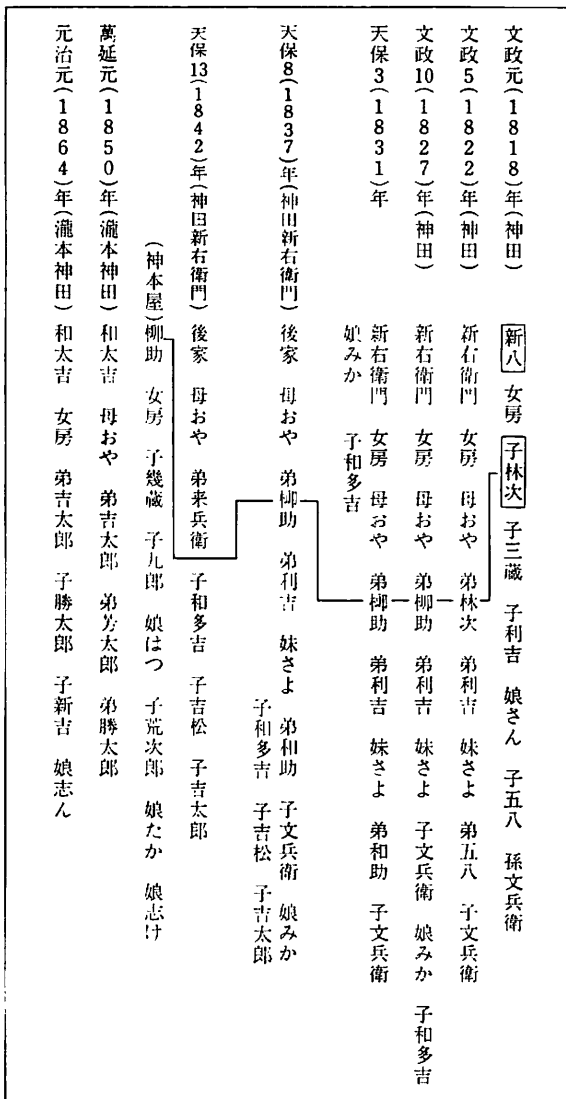 文政元(1818)年(神田) 新八 女房 子林次 子三蔵 子利吉 娘さん 子五八 孫文兵衛
文政5(1822)年(神田) 新右衛門 女房 母おや 弟林次 弟利吉 妹さよ 弟五八 子文兵衛
文政10(1827)年(神田) 新右衛門 女房 母おや 弟柳助 弟利吉 妹さよ 子文兵衛 娘みか 子和多吉
天保3(1831)年 新右衛門 女房 母おや 弟柳助 弟利吉 妹さよ 弟和助 子文兵衛
娘みか 子和多吉
天保8(1837)年(神田新右衛門) 後家 母おや 弟柳助 弟利吉 妹さよ 弟和助 子文兵衛 娘みか
子和多吉 子吉松 子吉太郎
天保13(1842)年(神田新右衛門) 後家 母おや 弟来兵衛 子和多吉 子吉松 子吉太郎
(神本屋)柳助 女房 子幾蔵 子九郎 娘はつ 子荒次郎 娘たか 娘志け
萬延元(1850)年(瀧本神田) 和太吉 母おや 弟吉太郎 弟芳太郎 弟勝太郎
元治元(1864)年(瀧本神田) 和太吉 女房 弟吉太郎 子勝太郎 子新吉 娘志ん